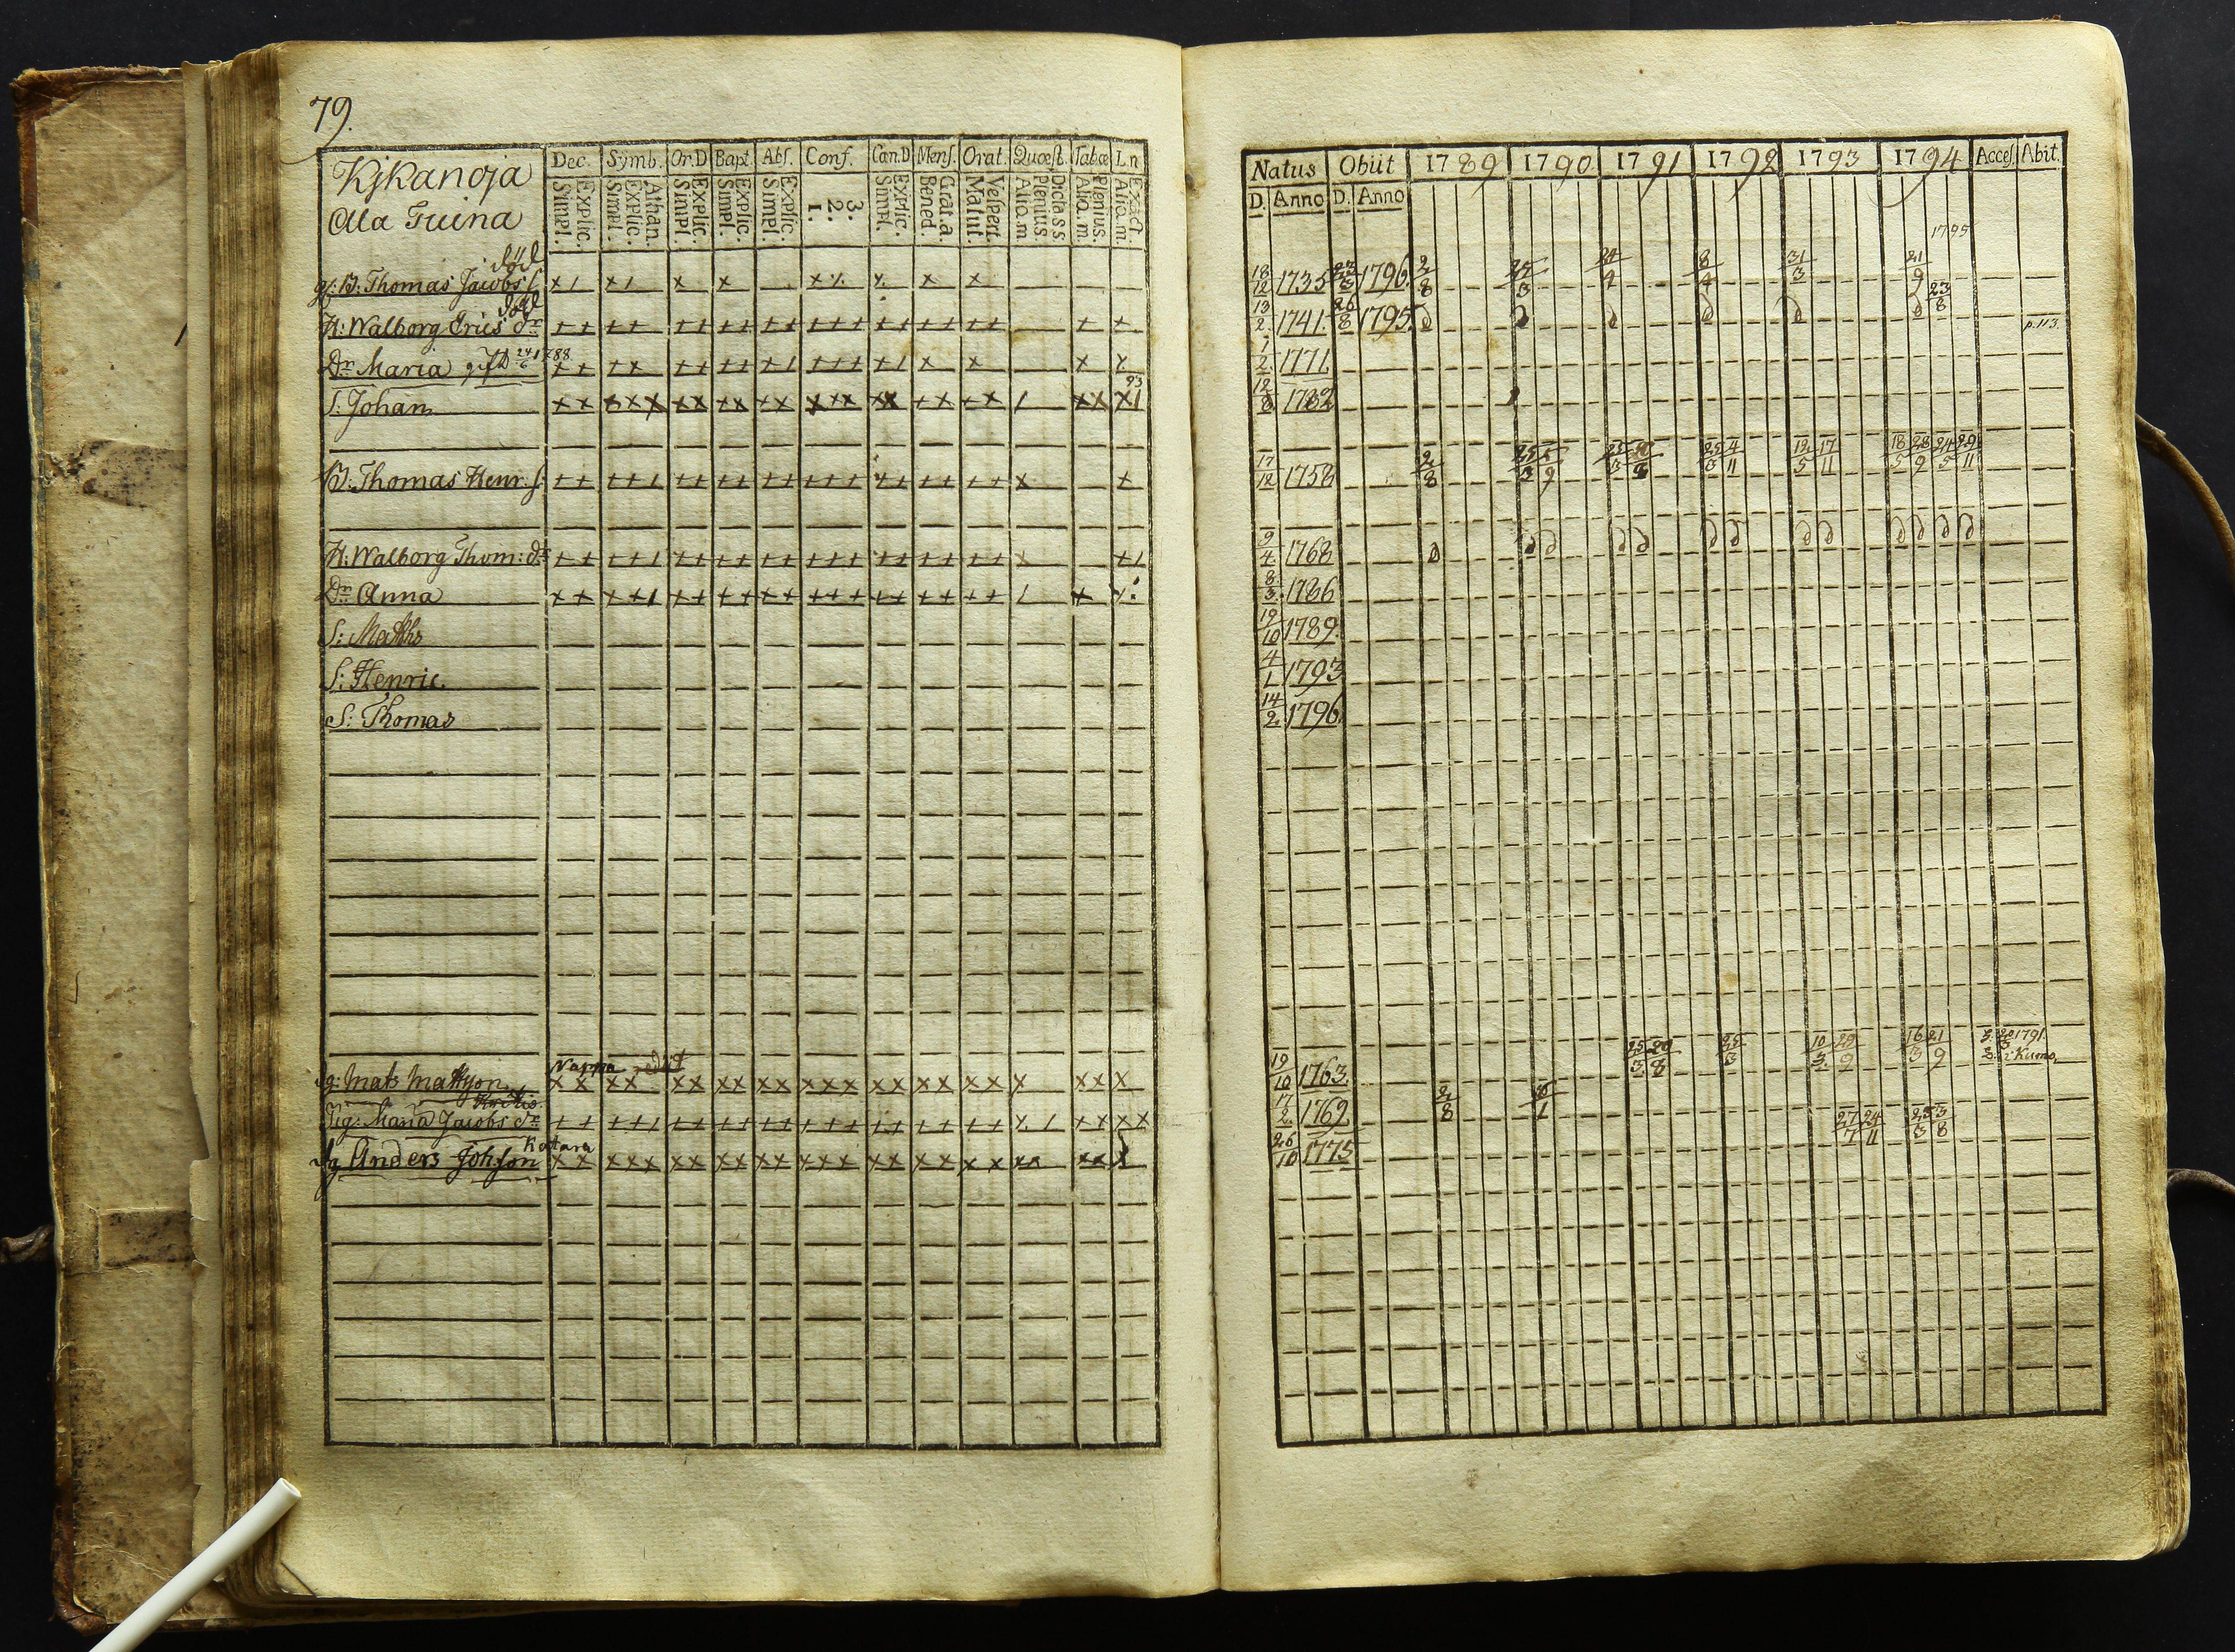 79.
Kjkanoja
Alla Tuina
Dec. Symb. Or.D Bapt. Abs. Conf. Can.D Mens. Orat. Quæst. Tabæ Ln
Explic. Simpl. Athan. Explic. Simpl. Explic. Simpl. Explic. Simpl. Explic. Simpl. 3. 2. 1. Explic. Simpl. Grat.a. Bened. Vespert. Matut. Dicta SS Plenius. Aliq.m Plenius. Aliq.m. Exact. Aliq.m.
död
gf: B: Thomas Jacobs S
död
H: Walborg Erics dr
Dr Maria gift 24/6 1788
S: Johan
93
B: Thomas Henr. S.
H: Walborg Thom: dr
Dr Anna
S: Matths
S: Henric.
S: Thomas
Nappa redit
Dg: Mats Mattson
Pig: Maria Jacobs dr
Katara
Dg Anders Johsson
Natus Obiit 1789 1790 1791 1792 1793 1794 Acces. Abit.
D. Anno D. Anno
1795
18/12 1735 23/3 1796. 2/8 25/3 24/4 8/4 31/3 21/9
13/2 1741. 26/8 1795. 23/8
p. 113.
1/2 1771.
12/8 1782
17/12 1758 2/8 25/3 5/9 25/3 25/3 4/11 12/5 17/11 18/5 28/9 24/5 29/11
9/4 1768
8/3 1786
19/10 1789.
4/1 1793
14/2 1796
19/10 1763. 25/3 20/8 25/3 10/3 29/9 16/3 21/9 1791 Kumo
17/2 1769. 2/8
26/10 1775 27/7 24/11 23/3 3/8